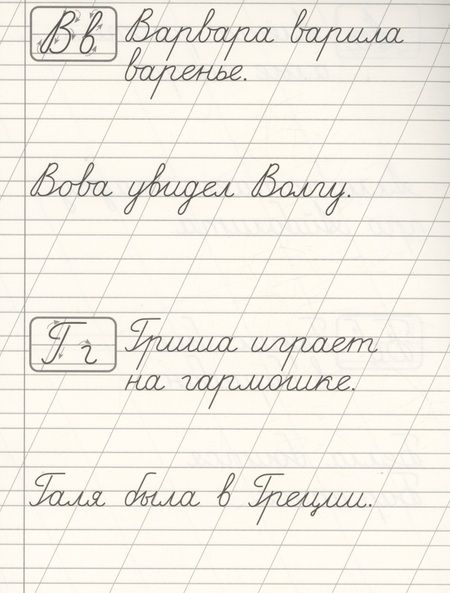 Вв Варвара варила
варенье.
Вова увидел Волгу.
Гг Гриша играет
на гармошке.
Галя была в Греции.